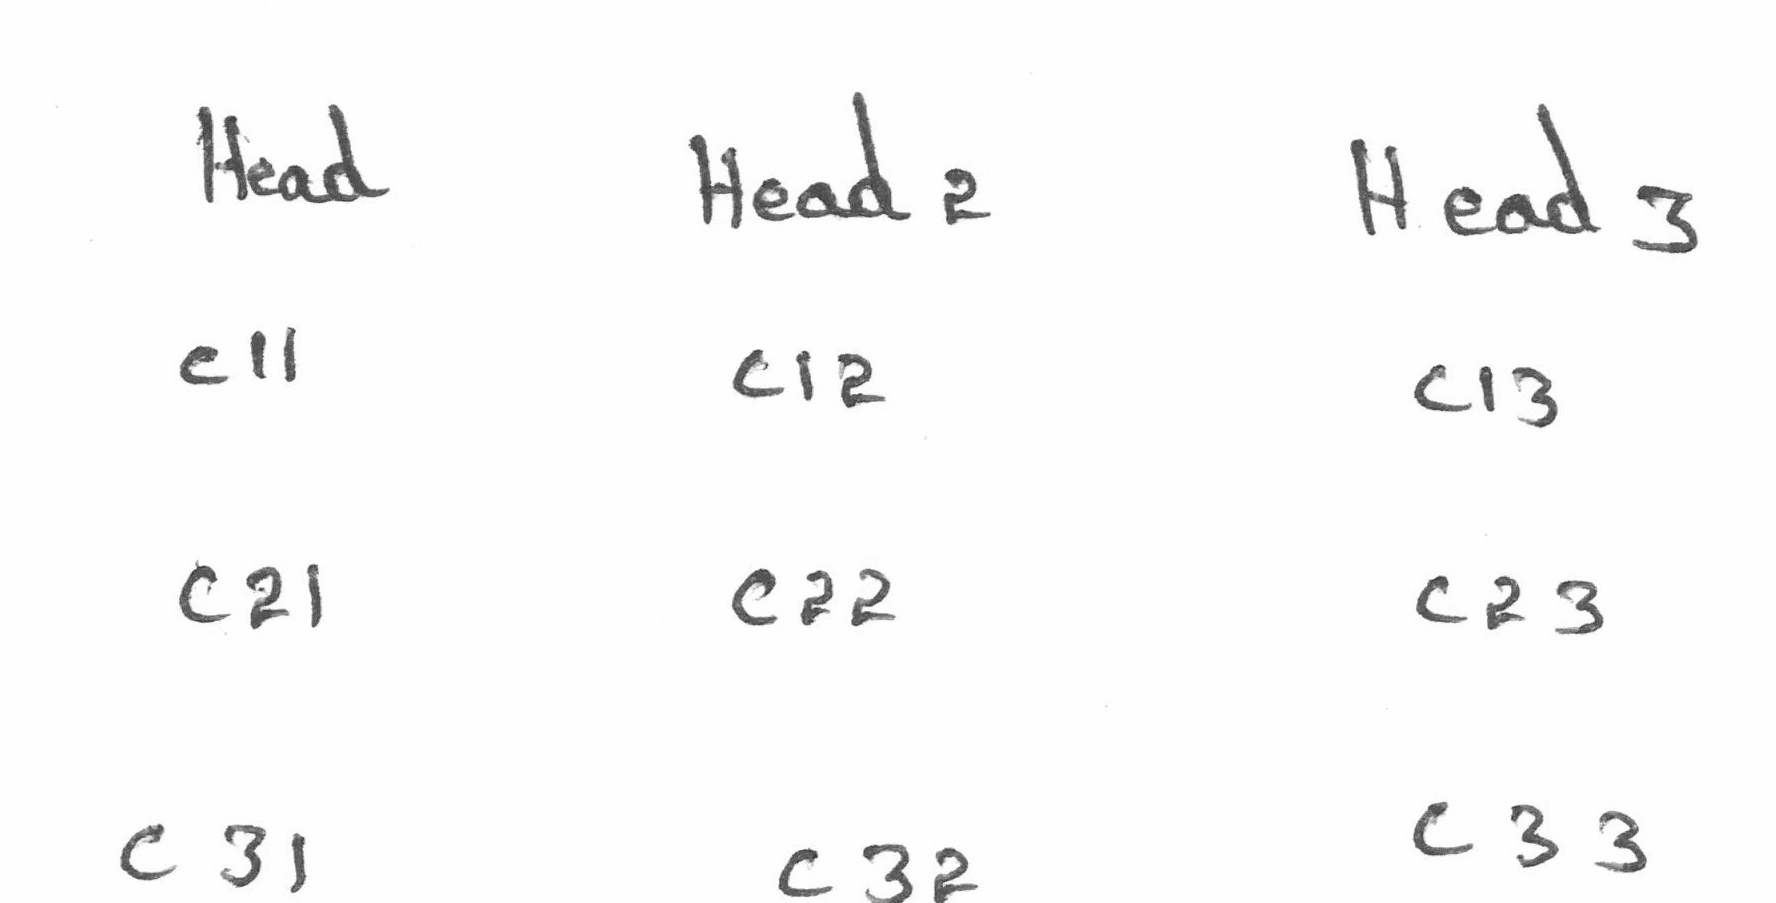 Head Head 2 Head 3
C11 C12 C13
C21 C22 C23
C31 C32 C33